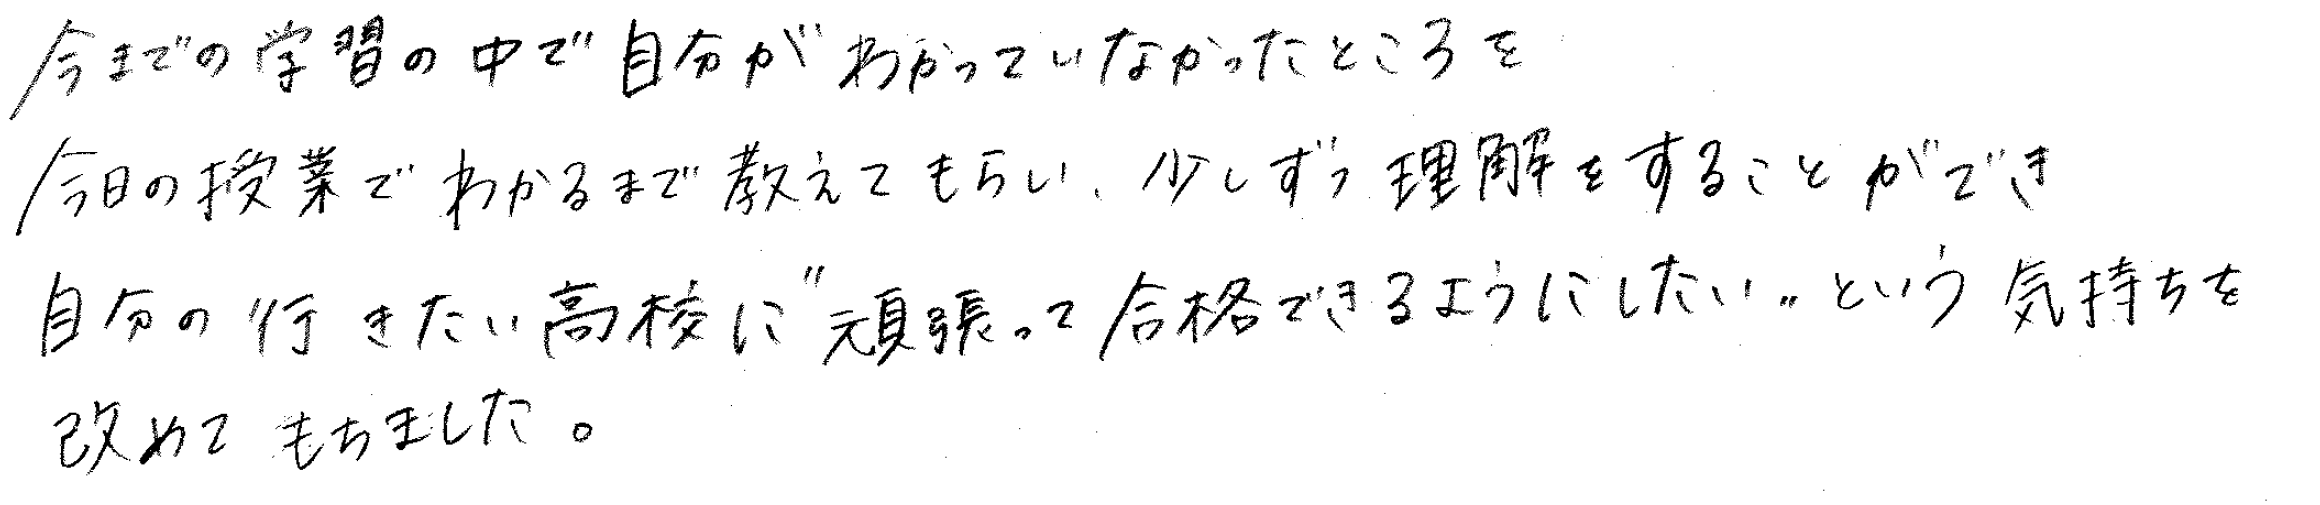 今までの学習の中で自分がわかっていなかったところを
今日の授業でわかるまで教えてもらい、少しずつ理解をすることができ
自分の行きたい高校に"頑張って合格できるようにしたい"という気持ちを
改めてもちました。